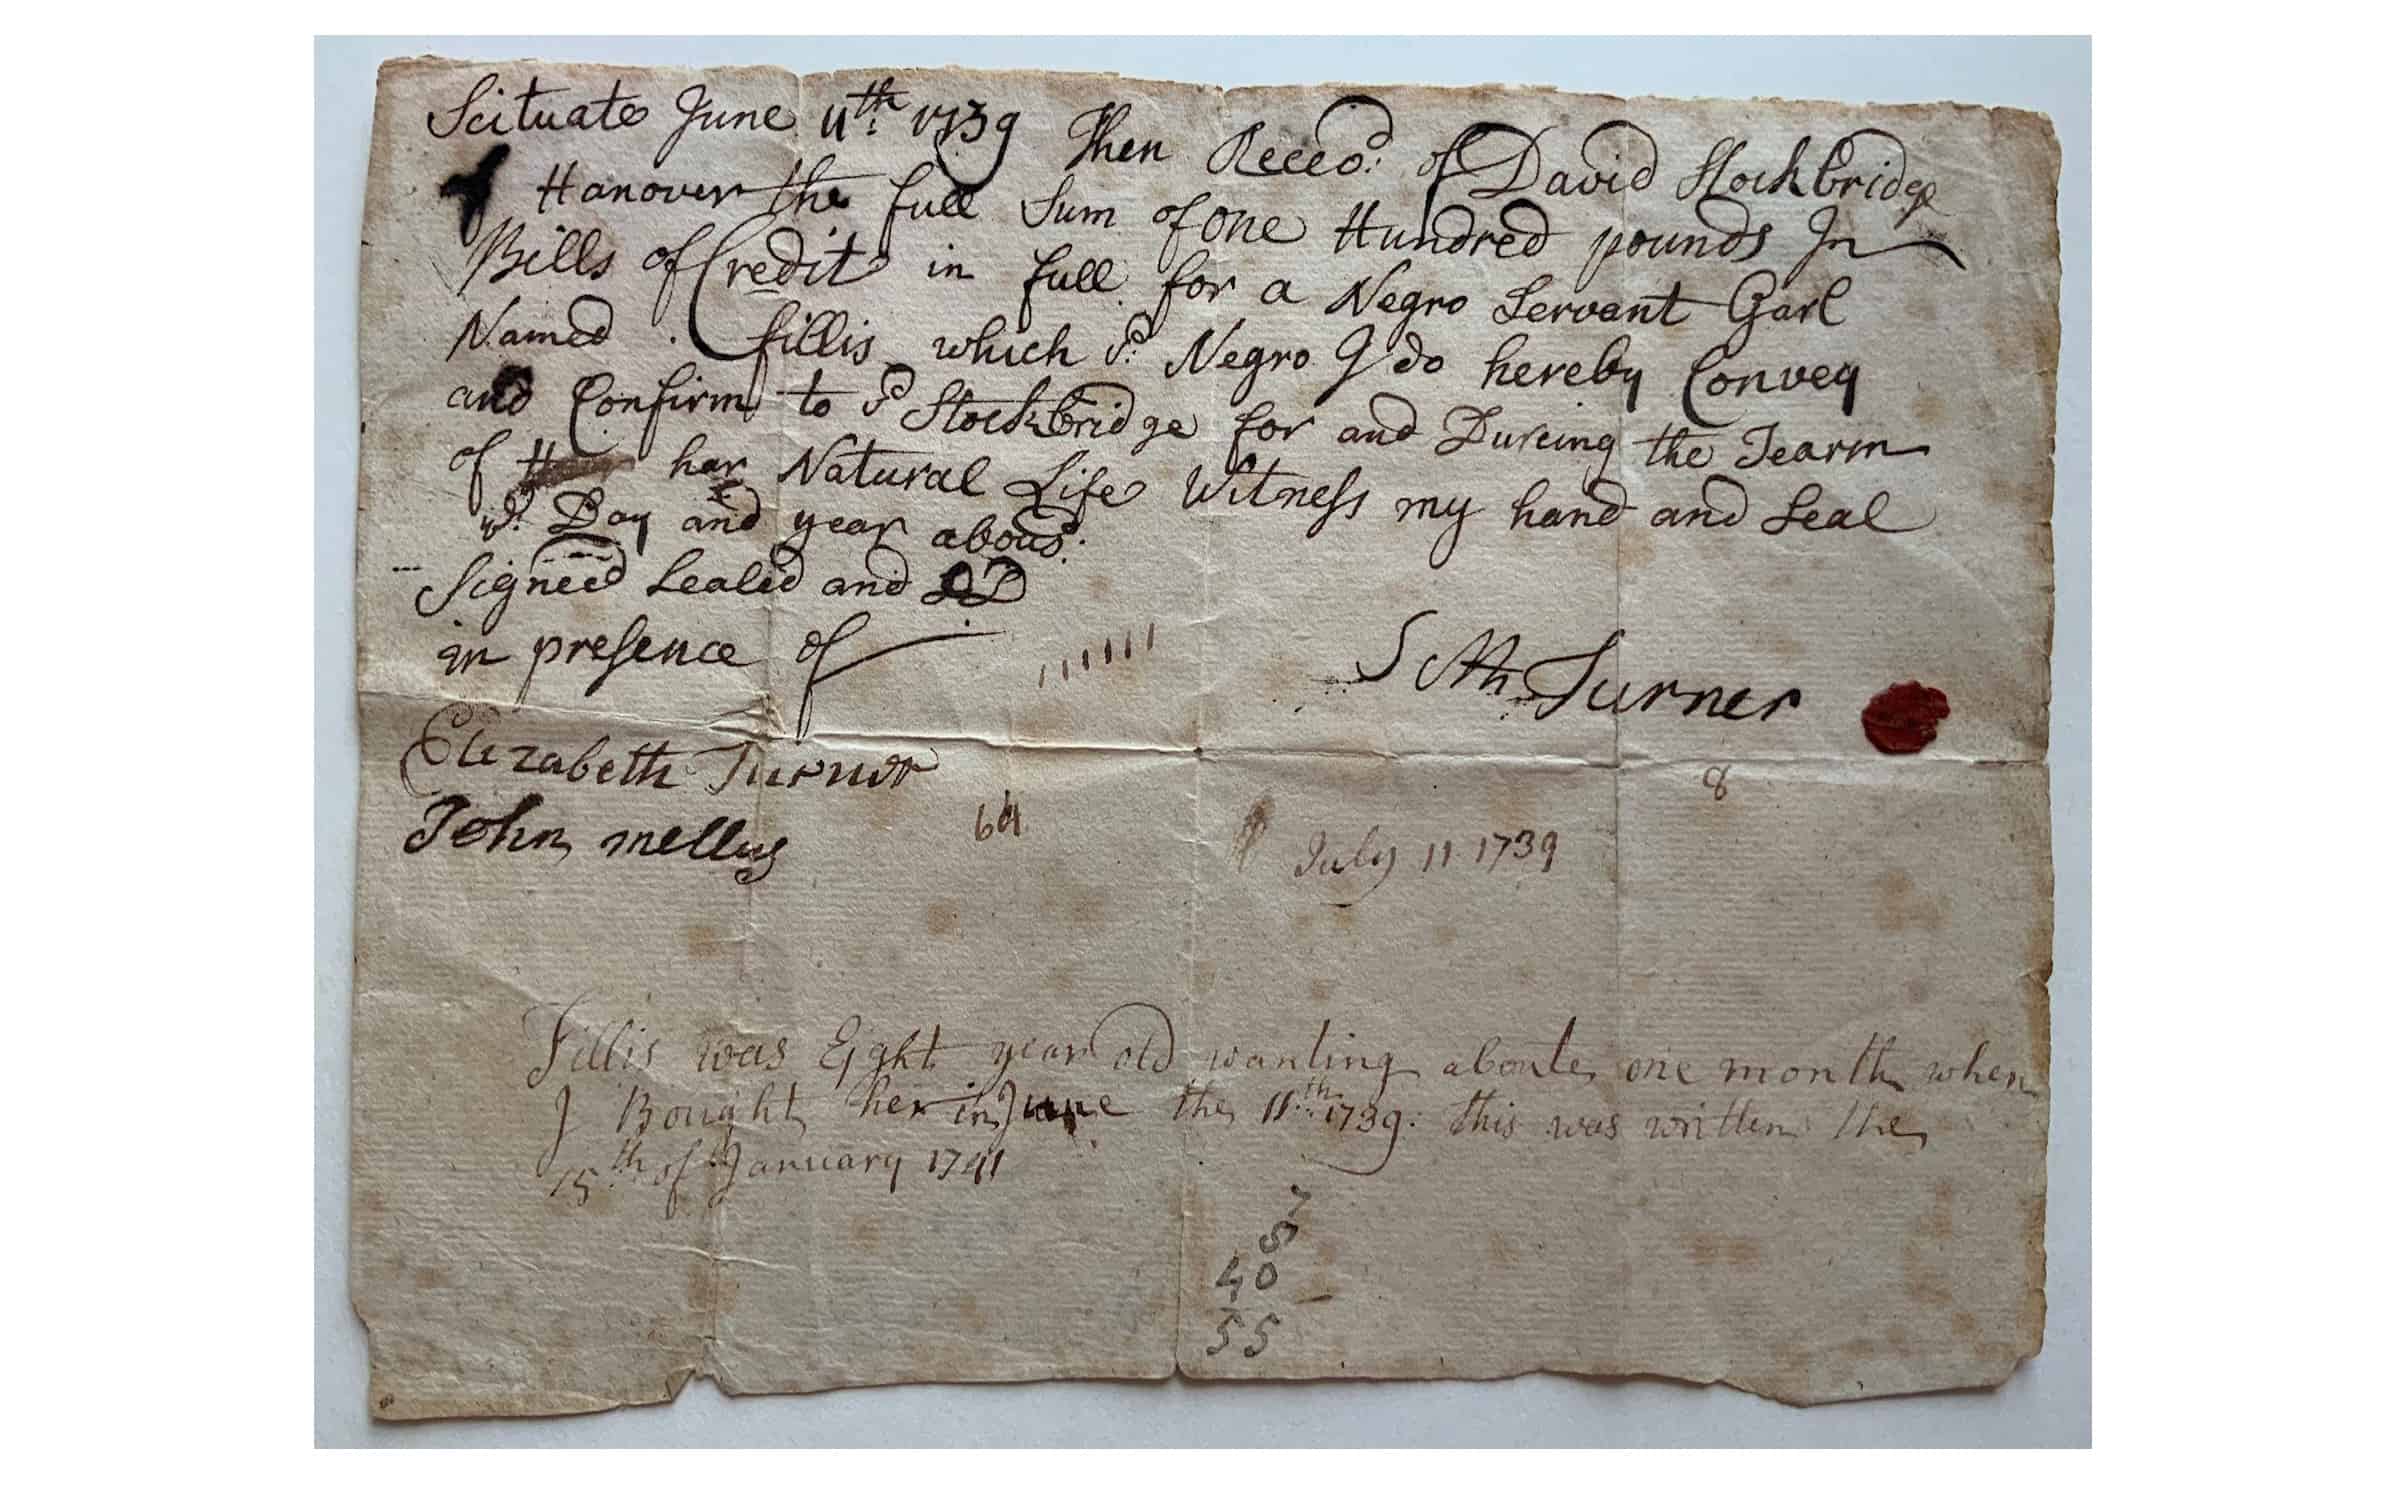 Scituate June 11th: 1739 Then Receod: of David Stockbridge
of Hanover the full Sum of One Hundred pounds In
Bills of Credit in full for a Negro Servant Garl
Named . fillis which sd: Negro I do hereby Convey
and Confirm to sd Stockbridge for and Dureing the Tearm
of har Natural Life Witness my hand and Seal
Day and year aboud:
Signeed Sealed and DD
in presence of
Seth Turner
Elizabeth Turner
8
John mellus
64
July 11 1739
Fillis was Eight year old wanting aboute one month when
I Bought her in June the 11th: 1739: this was written the
15th of January 1741
7
8
40
55